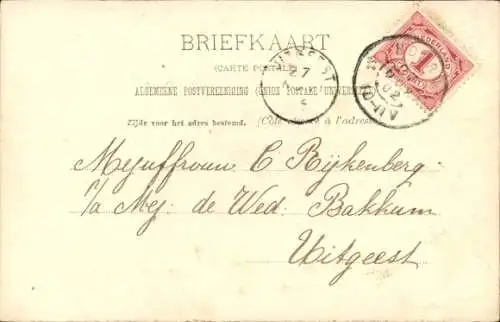 BRIEFKAART
(CARTE POSTALE)
ALGEMEENE POSTVEREENIGING (UNION POSTALE UNIVERSELLE)
Zijde voor het adres bestemd. (Côté réservé à l'adresse)
NEDERLAND
1
UITGEEST
27
Mejuffrouw C Rijkenberg
p/a Mej. de Wed. Bakkum
Uitgeest